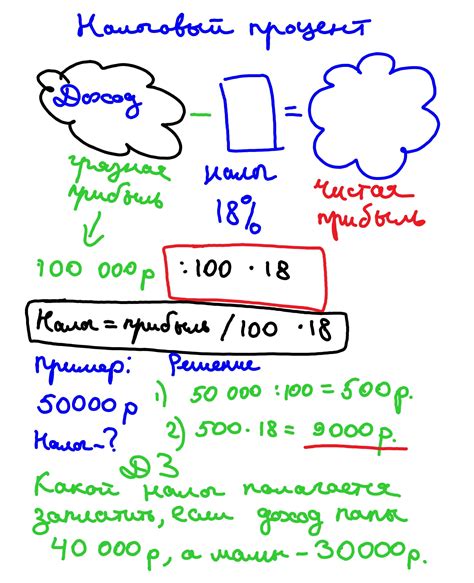 Налоговый процент
Доход - = 
грязная прибыль
налог
18%
чистая прибыль
100 000р :100 · 18
Налог = прибыль / 100 · 18
Пример: Решение
50000р 1) 50 000 :100 = 500р.
Налог-? 2) 500 · 18 = 9000р.
ДЗ
Какой налог полагается
заплатить, если доход папы
40 000р, а мамы - 30000р.